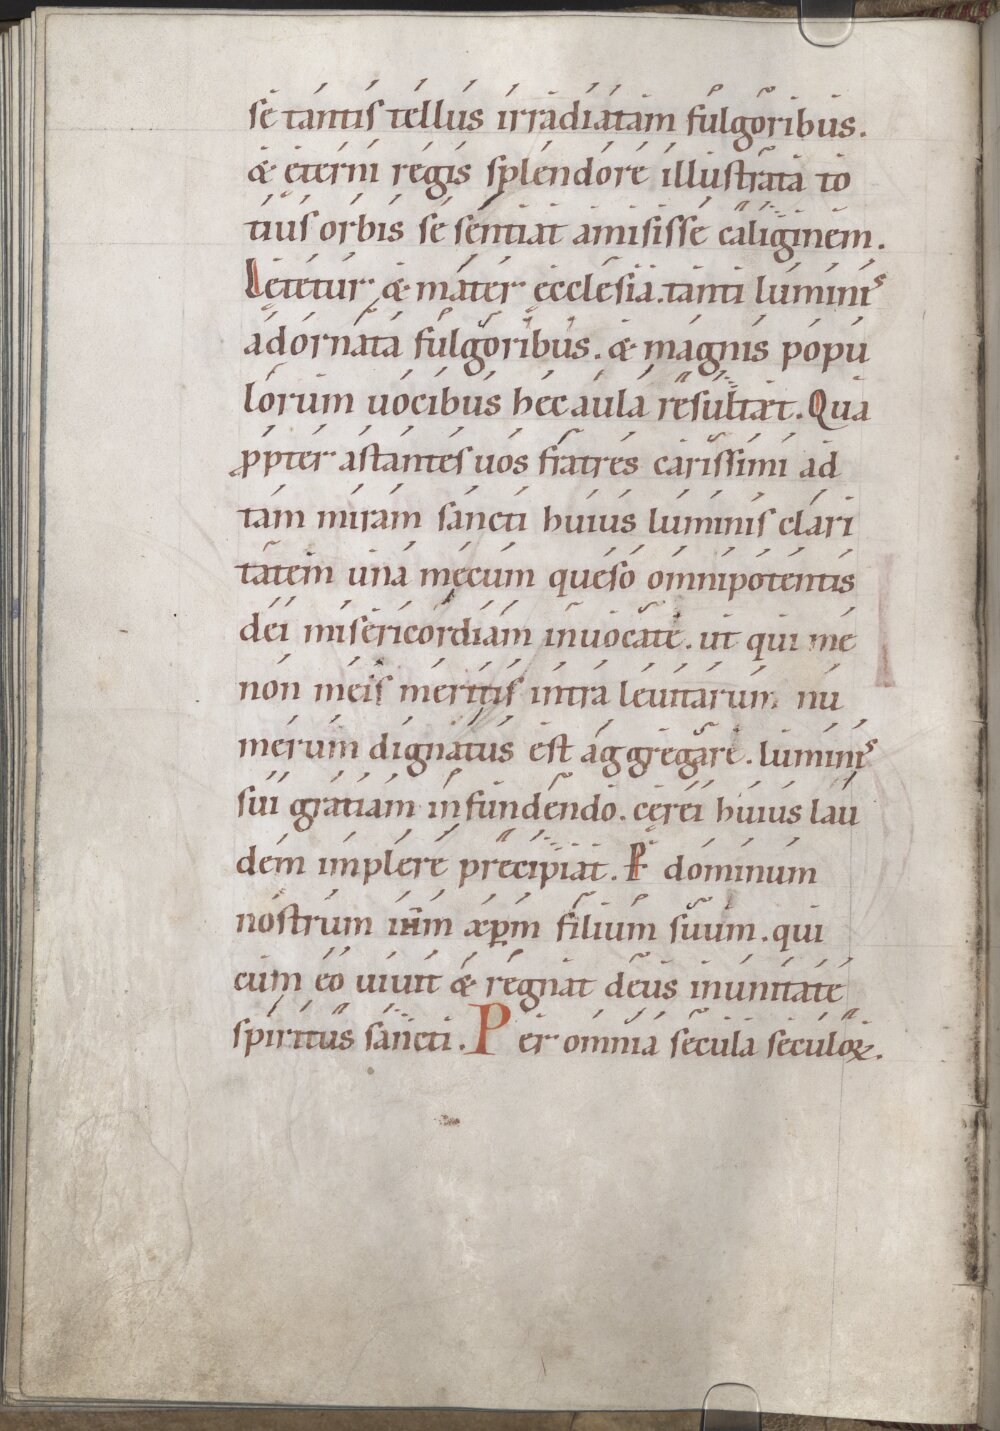 se tantis tellus irradiatam fulgoribus.
& ęterni regis splendore illustrata to
tius orbis se sentiat amisisse caliginem.
Lętetur & mater ęcclesia. tanti luminis
adornata fulgoribus. & magnis popu
lorum uocibus hęc aula resultæt. Qua
ppter astantes uos fratres carissimi ad
tam miram sancti huius luminis clari
tatem una mecum quęso omnipotentis
dei misericordiam inuocate. ut qui me
non meis meritis intra leuitarum nu
merum dignatus est aggregare. luminis
sui gratiam infundendo. cęrei huius lau
dem implere precipiat. P dominum
nostrum ihm xpm filium suum. qui
cum eo uiuit & regnat deus inunitate
spiritus sancti. Per omnia secula seculoꝝ.